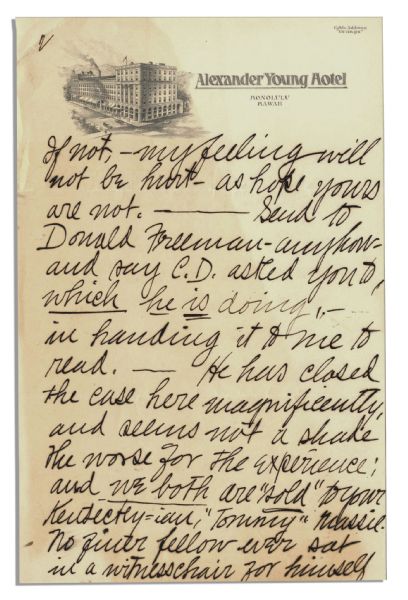 2
Cable Address
Alexander Young Hotel
HONOLULU
HAWAII
If not, – my feeling will
not be hurt – as hope yours
are not. —— Send to
Donald Freeman – anyhow –
and say C.D. asked you to,
which he is doing, –
in handing it to me to
read. — He has closed
the case here magnificently,
and seems not a shade
the worse for the experience;
and we both are "sold" to your
Kentucky=ian, "Tommy" Massie.
No finer fellow ever sat
in a witness chair for himself